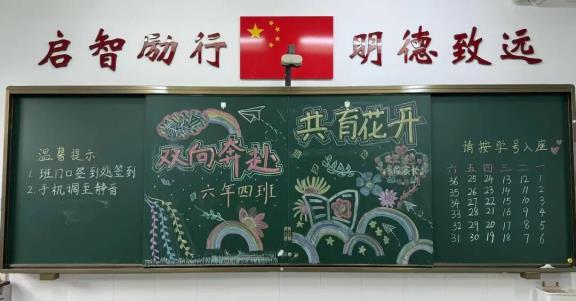 启智励行 明德致远
温馨提示
1.班门口签到处签到
2.手机调至静音
双向奔赴
六年四班
共育花开
请按学号入座
六 五 四 三 二 一
36 25 24 13 12 1
35 26 23 14 11 2
34 27 22 15 10 3
33 28 21 16 9 4
32 29 20 17 8 5
31 30 19 18 7 6